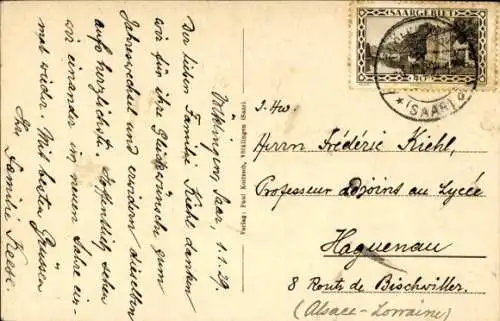 Völklingen, Saar, 1.1.29.
Der lieben Familie Kiehl danken
wir für ihre Glückwünsche zum
Jahreswechsel und erwidern dieselben
aufs herzlichste. Hoffentlich sehen
wir einander im neuen Jahre ein-
mal wieder. Mit besten Grüssen
Ihre Familie
Verlag: Paul Völklingen (Saar)
SAARGEBIET
(SAAR)
Herrn Frédéric Kiehl,
Professeur adjoint au Lycée
Haguenau
8 Route de Bischwiller.
(Alsace-Lorraine)